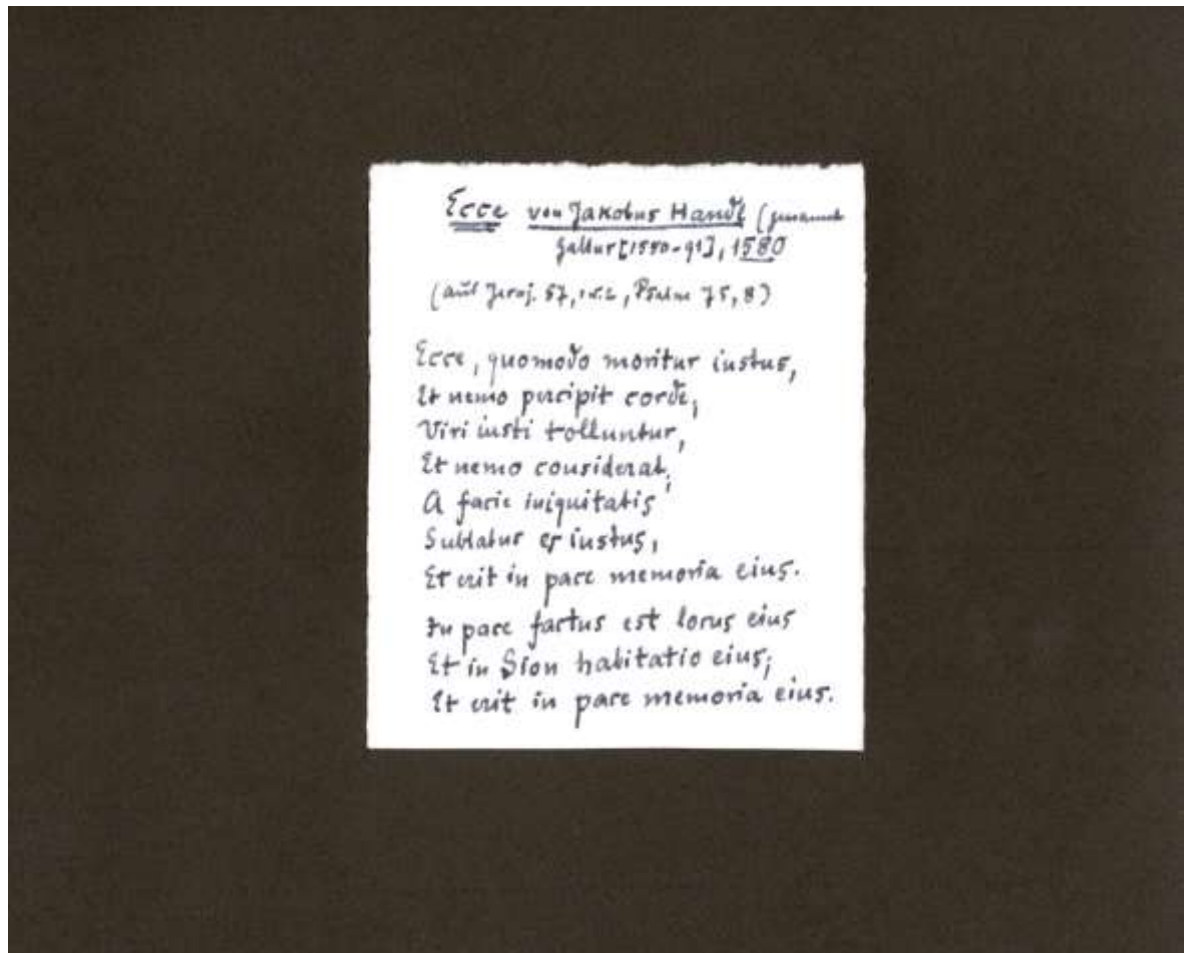 Ecce von Jakobus Handl (genannt
Gallus [1550-91], 1580
(aus Jesaj. 57, 1 u. 2, Psalm 75, 8)
Ecce, quomodo moritur iustus,
Et nemo percipit corde;
Viri iusti tolluntur,
Et nemo considerat;
A facie iniquitatis
Sublatus es iustus,
Et erit in pace memoria eius.
In pace factus est locus eius
Et in Sion habitatio eius;
Et erit in pace memoria eius.